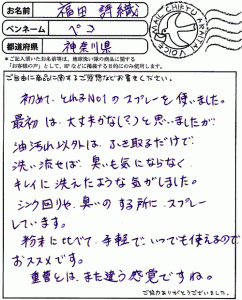 お名前 福田 詩織
ペンネーム ペコ
都道府県 神奈川県
MAIL CHIKYU ARAITAI VOICE
＊ご記入頂いたお名前等は、地球洗い隊の商品に関する
「お客様の声」として、HPなどに掲載する目的にのみ使用します。
ご自由に商品に関するご感想などお書きください。
初めて、とれるNo1のスプレーを使いました。
最初は、大丈夫かな(?)と思いましたが
油汚れ以外は、ふき取るだけで、
洗い流せば、臭いも気にならなく、
キレイに洗えたような気がしました。
シンク回りや、臭いのする所に、スプレー
しています。
粉末に比べて、手軽で、いつでも使えるので
おススメです。
重曹とは、また違う感覚ですね。
ご協力ありがとうございました。